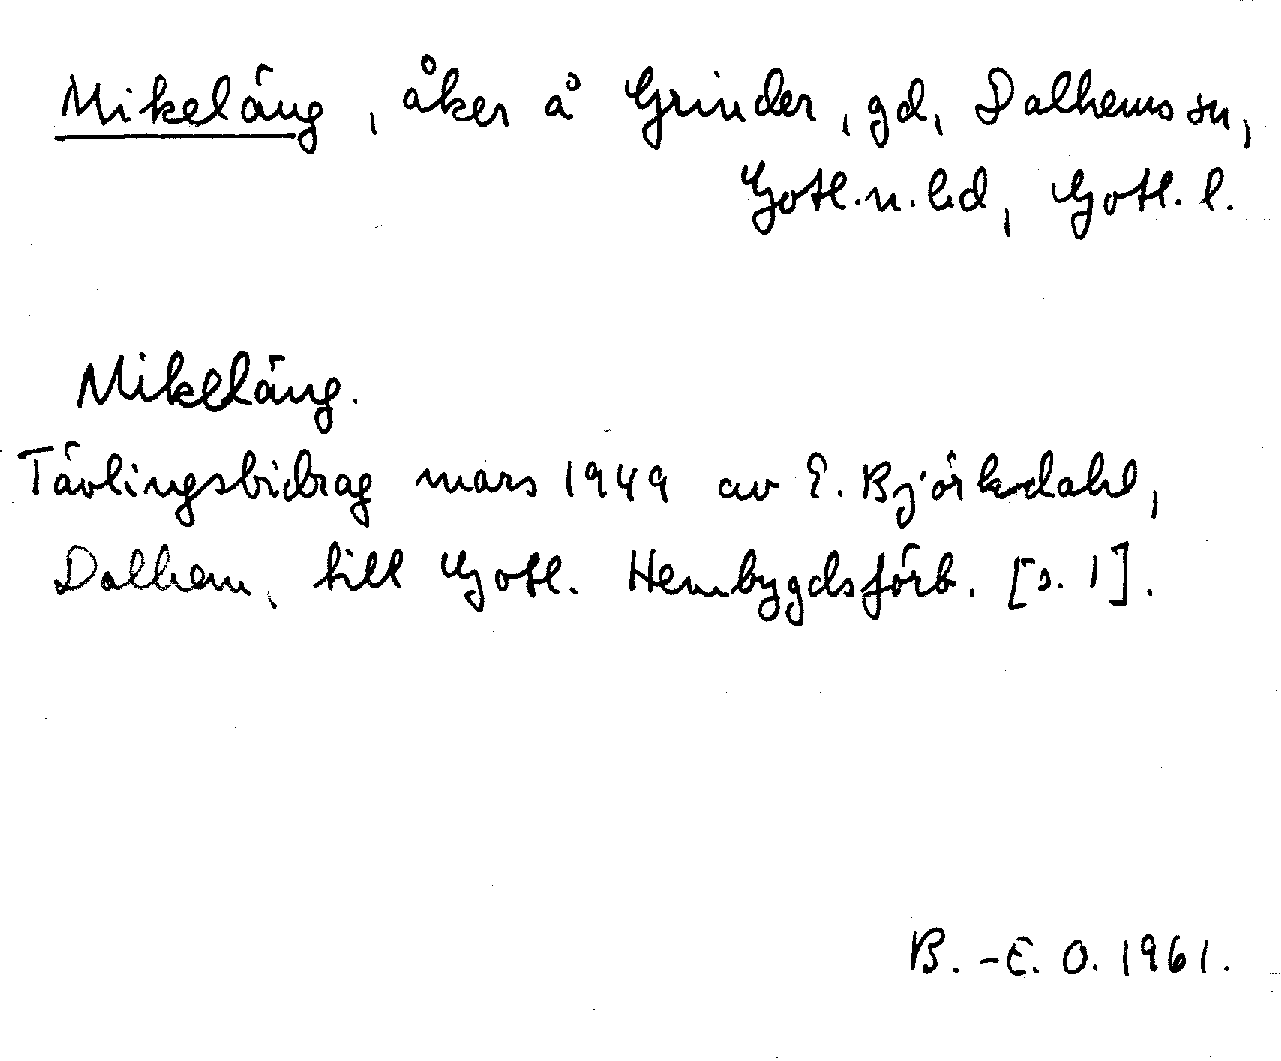 Mikeläng, åker å Grinder, gd, Dalhems sn,
Gotl. n. hd, Gotl. l.
Mikeläng.
Tävlingsbidrag mars 1949 av E. Björkdahl,
Dalhem, till Gotl. Hembygdsförb. [s. 1].
B.-E. O. 1961.